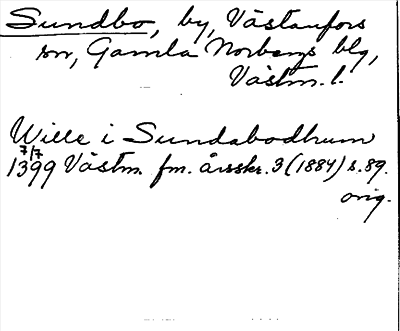 Sundbo, by, Västanfors
sn, Gamla Norbergs blg,
Västm. l.
Wille i Sundabodhum
7/7
1399 Västm. fm. årsskr. 3 (1884) s. 89.
orig.